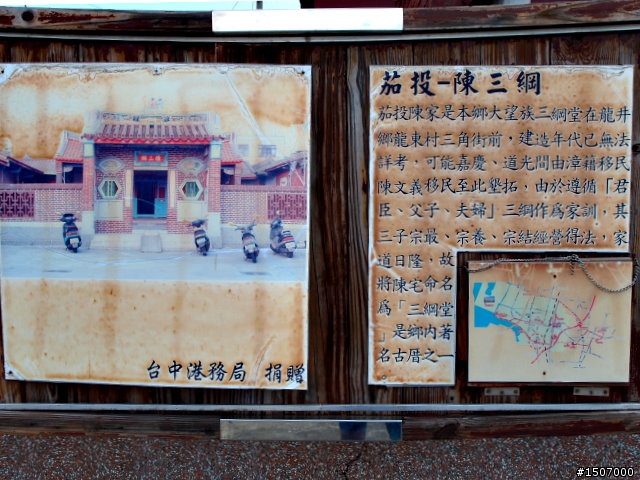 台中港務局 捐贈
茄投-陳三綱
茄投陳家是本鄉大望族三綱堂在龍井
鄉龍東村三角街前,建造年代已無法
詳考,可能嘉慶、道光間由漳籍移民
陳文義移民至此墾拓,由於遵循「君
臣、父子、夫婦」三綱作為家訓,其
三子宗最、宗養、宗結經營得法,家
道日隆,故
將陳宅命名
為「三綱堂
」是鄉內著
名古厝之一
。
#1507000